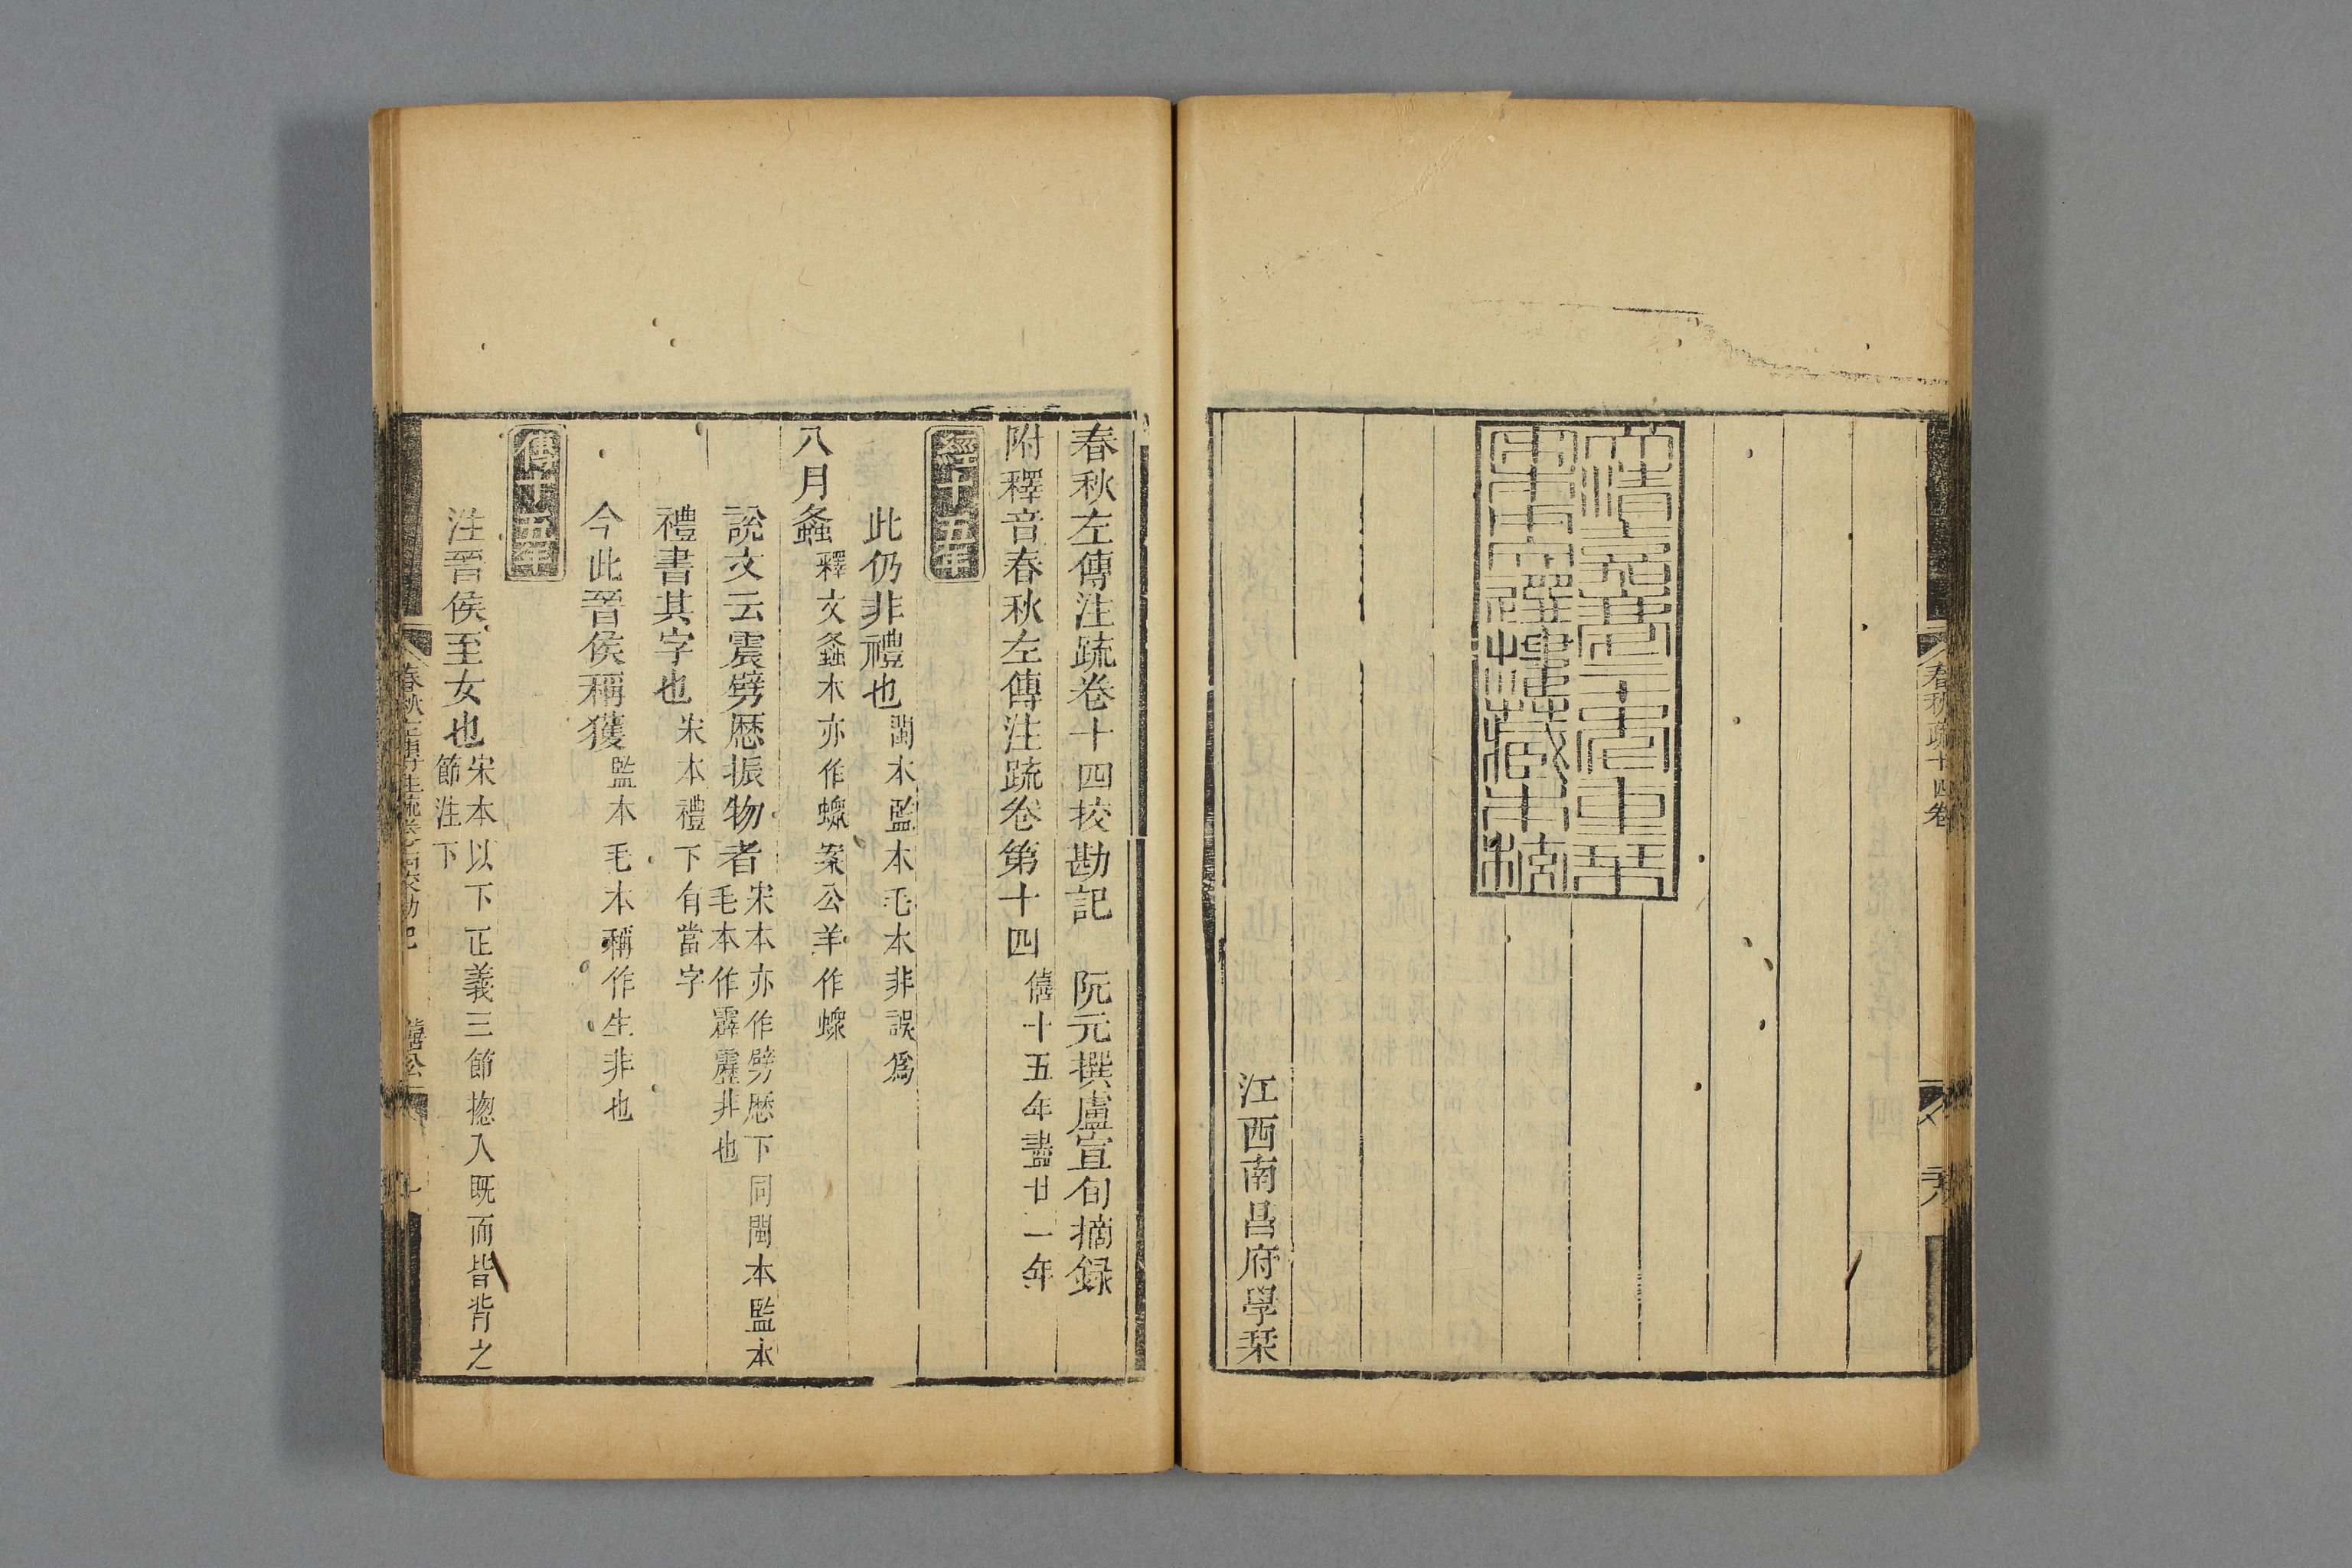 春秋疏十四卷
大清嘉慶二十一年用文選樓藏本校梓
江西南昌府學栞
春秋左傳注疏卷十四挍勘記　阮元撰盧宣旬摘録
附釋音春秋左傳注疏卷第十四　僖十五年盡廿一年
經十五年
此仍非禮也　閩本監本毛本非誤爲
八月螽　釋文螽本亦作蠓案公羊作蠓
說文云震劈歴振物者　宋本亦作劈歴下同閩本監本毛本作霹靂非也
禮書其字也　宋本禮下有當字
今此晉侯稱獲　監本毛本稱作生非也
傳十五年
注晉侯至女也　宋本以下正義三節揔入既而皆背之節注下
春秋左傳注疏卷十四挍勘記　僖公　一